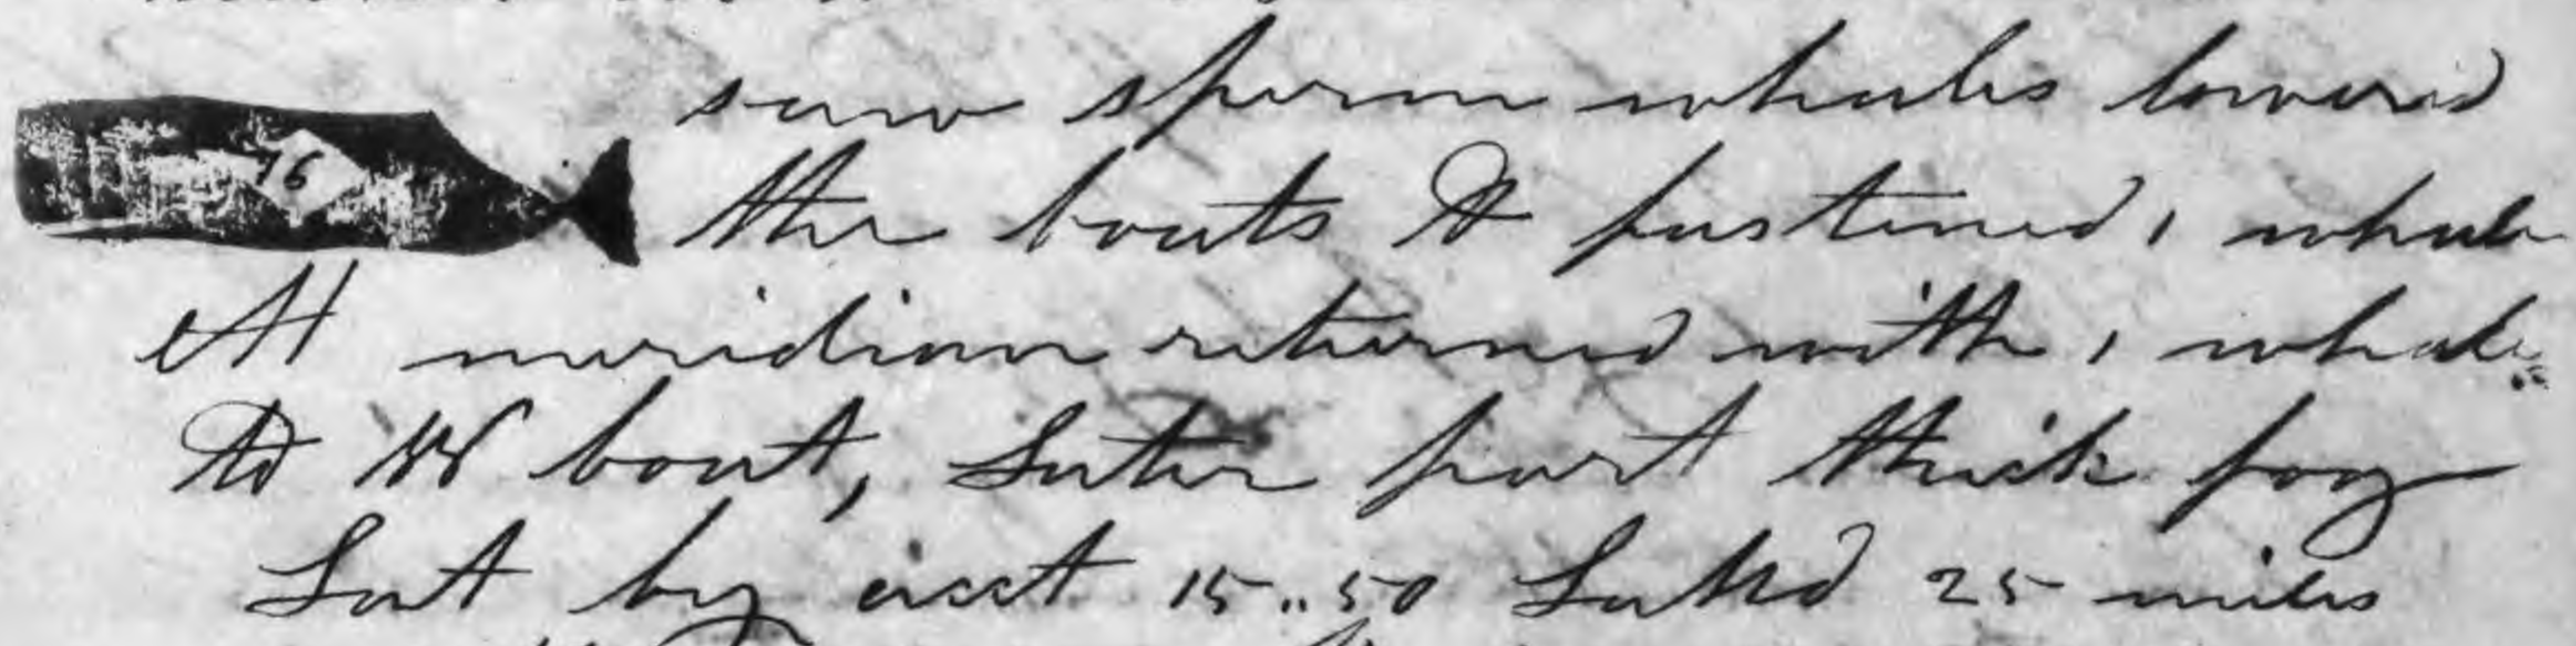 saw sperm whales lowered
76
the boats & fastened 1 whale
At meridian returned with 1 whale
boat, Later part thick fog
Lat by acct 15..50 Latd 25 miles